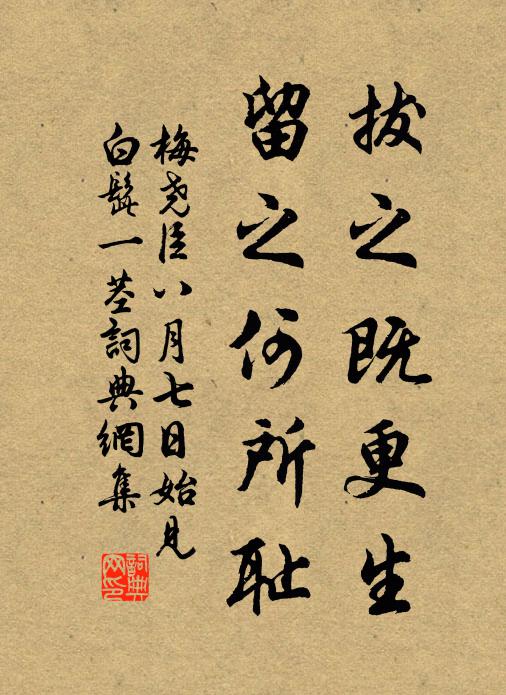 拔之既更生
留之何所耻
梅尧臣八月七日始见
白髭一茎詞典網集
詞典
网印